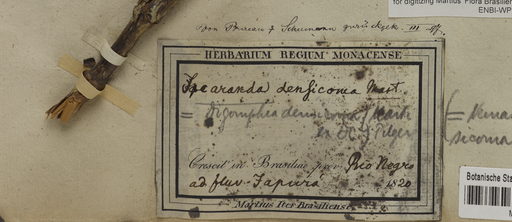 for digitizing Martius' Flora Brasilien
ENBI-WP
von Bureau & Schumann zurück
HERBARIUM REGIUM MONACENSE
Jacaranda densicoma Mart.
= Digomphia densicoma (Mart.
ex DC.) Pilger
(=
sicoma
Crescit in Brasiliae prov. Rio Negro
ad fluv. Japurá 1820
Martius Iter Brasiliense
Botanische Sta
M